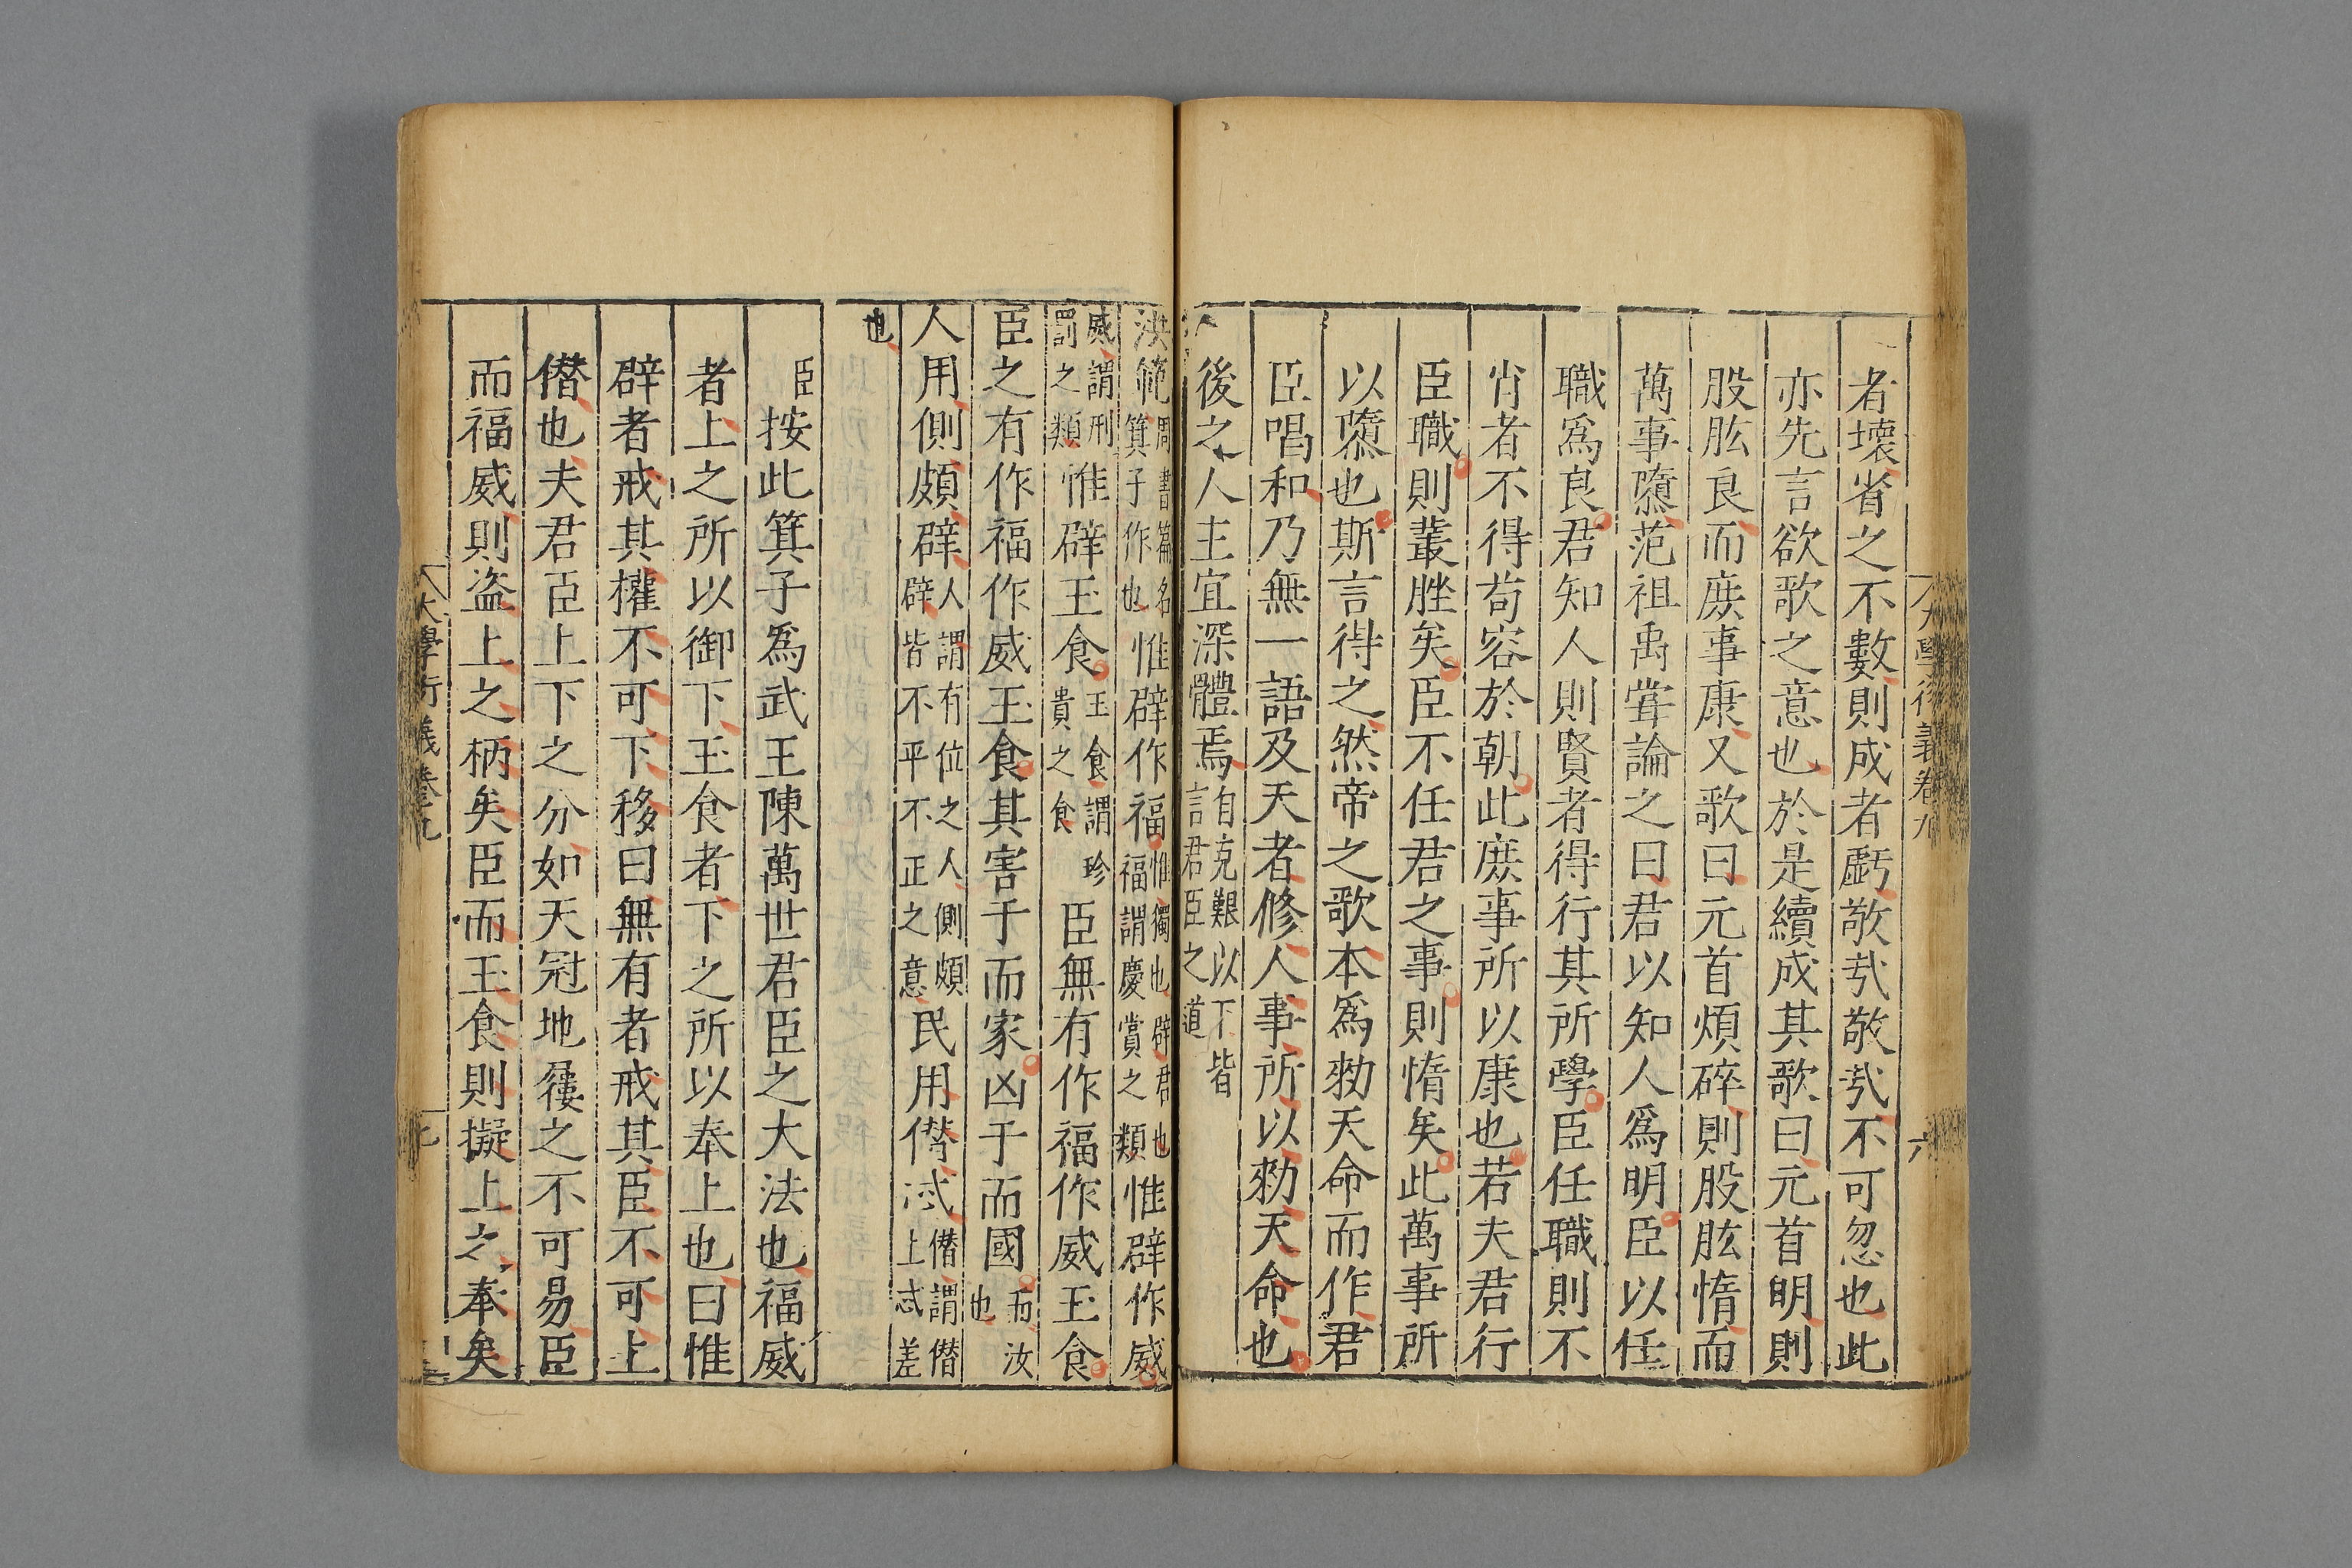 者壞省之不數則成者虧敬㢤敬㢤不可忽也此
亦先言欲歌之意也於是續成其歌曰元首明則
股肱良而庶事康又歌曰元首煩碎則股肱惰而
萬事隳范祖禹嘗論之曰君以知人爲明臣以任
職爲良君知人則賢者得行其所學臣任職則不
肖者不得苟容於朝此庶事所以康也若夫君行
臣職則叢脞矣臣不任君之事則惰矣此萬事所
以隳也斯言得之然帝之歌本爲勑天命而作君
臣唱和乃無一語及天者修人事所以勑天命也
後之人主宜深體焉自克艱以下皆言君臣之道
洪範周書篇名箕子作也惟辟作福惟獨也辟君也福謂慶賞之類惟辟作威
威謂刑罰之類惟辟玉食玉食謂珍貴之食臣無有作福作威玉食
臣之有作福作威玉食其害于而家凶于而國而汝也
人用側頗辟人謂有位之人側頗辟皆不平不正之意民用僭忒僭謂僭上忒差
也
臣按此箕子爲武王陳萬世君臣之大法也福威
者上之所以御下玉食者下之所以奉上也曰惟
辟者戒其權不可下移曰無有者戒其臣不可上
僭也夫君臣上下之分如天冠地屨之不可易臣
而福威則盜上之柄矣臣而玉食則擬上之奉矣
大學衍義卷九